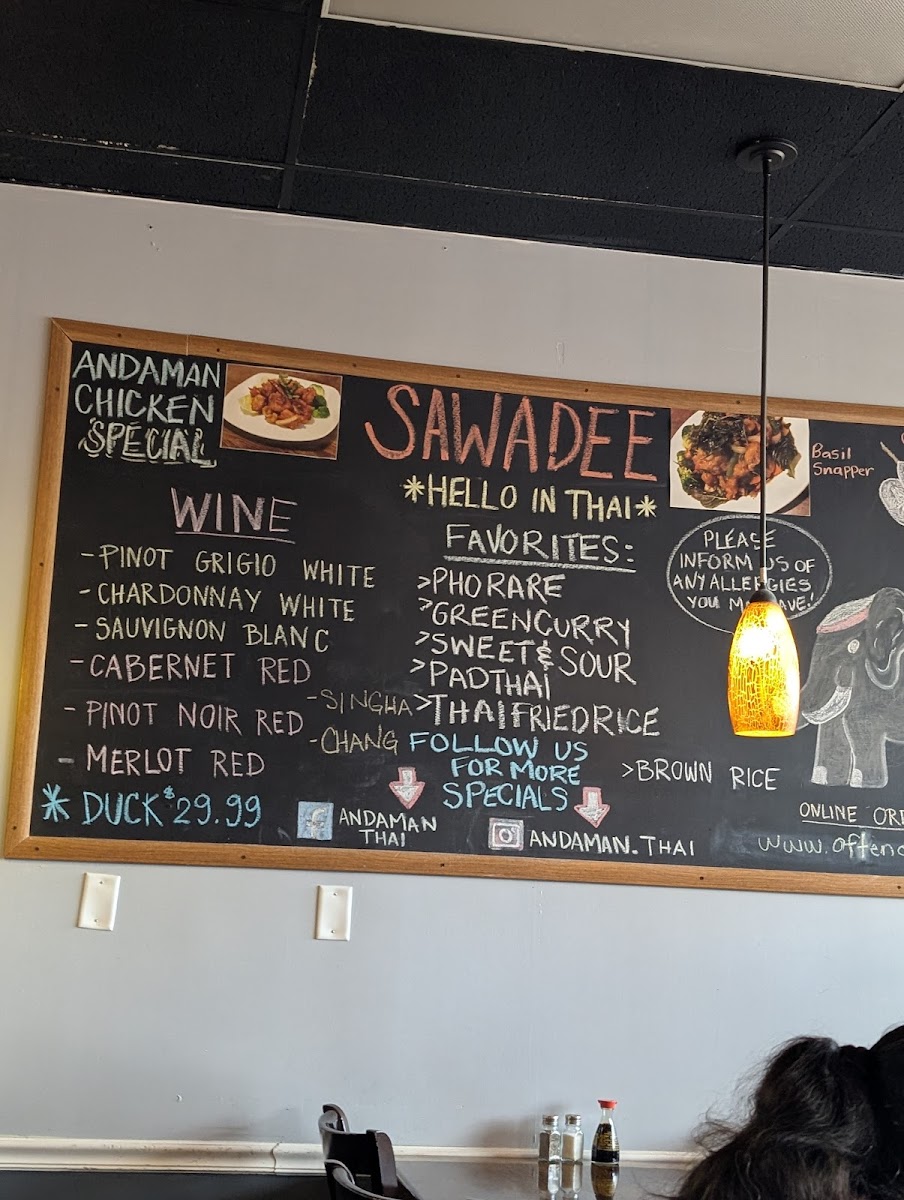 ANDAMAN
CHICKEN
SPECIAL
WINE
-PINOT GRIGIO WHITE
-CHARDONNAY WHITE
-SAUVIGNON BLANC
-CABERNET RED
-PINOT NOIR RED
-MERLOT RED
* DUCK $29.99
-SINGHA
-CHANG
SAWADEE
*HELLO IN THAI*
FAVORITES:
>PHO RARE
>GREEN CURRY
>SWEET & SOUR
>PADTHAI
>THAI FRIED RICE
>BROWN RICE
FOLLOW US
FOR MORE
SPECIALS
ANDAMAN
THAI
ANDAMAN.THAI
Basil
Snapper
PLEASE
INFORM US OF
ANY ALLERGIES
YOU HAVE!
ONLINE
www.